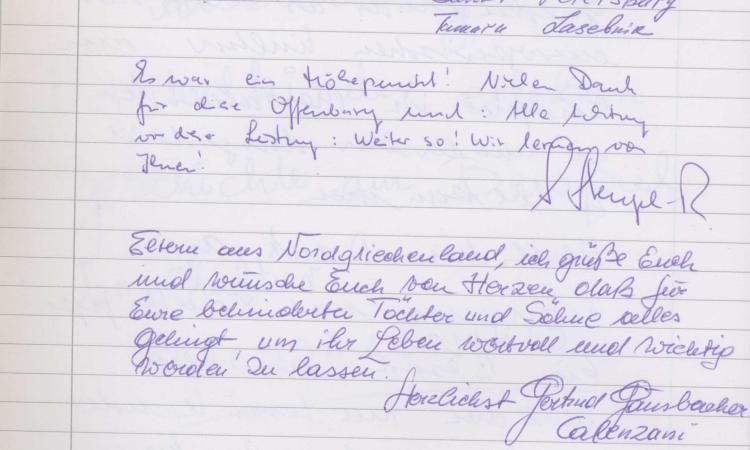 Sankt Petersburg
Tamara Lasebnik
Es war ein Höhepunkt! Vielen Dank
für diese Offenbarung und: Alle Achtung
vor dieser Leistung: Weiter so! Wir lernen von
Ihnen!
Eltern aus Nordgriechenland, ich grüße Euch
und wünsche Euch von Herzen, daß für
Eure behinderten Töchter und Söhne alles
gelingt, um ihr Leben wertvoll und wichtig
werden zu lassen.
Herzlichst Gertrud